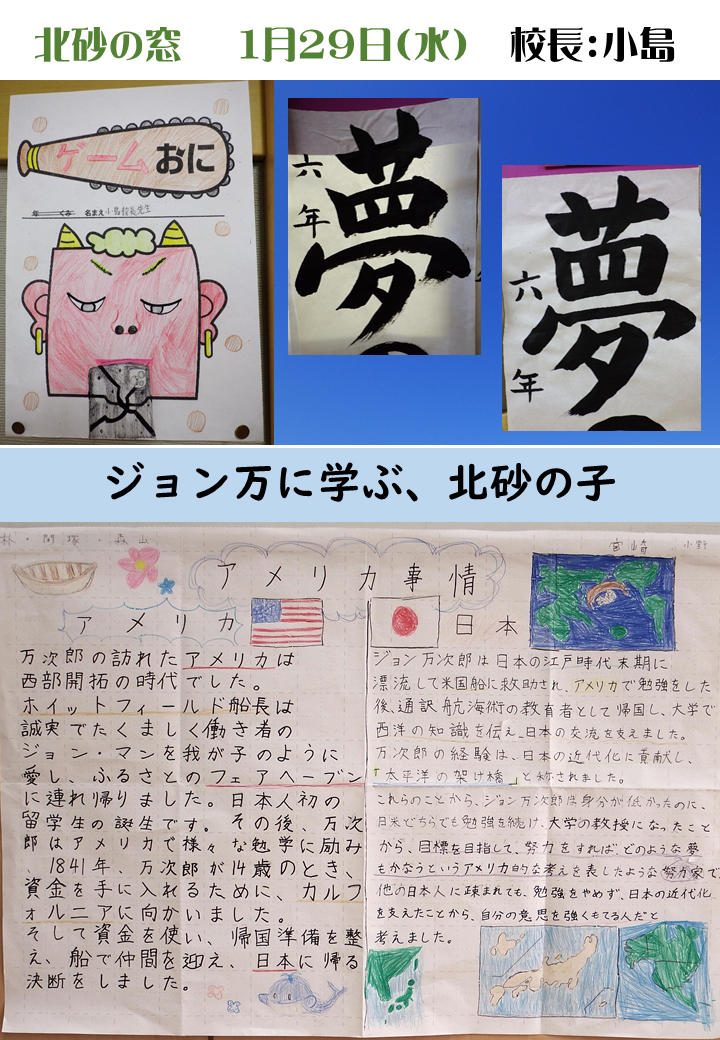 北砂の窓 1月29日(水) 校長:小島
ゲームおに
年 くみ 名まえ 小島校長先生
夢
六年
夢
六年
ジョン万に学ぶ、北砂の子
宮崎 小野
アメリカ事情
アメリカ
万次郎の訪れたアメリカは
西部開拓の時代でした。
ホイットフィールド船長は
誠実でたくましく働き者の
ジョン・マンを我が子のように
愛し、ふるさとのフェアヘーブン
に連れ帰りました。日本人初の
留学生の誕生です。その後、万次
郎はアメリカで様々な勉学に励み
、1841年、万次郎が14歳のとき、
資金を手に入れるために、カルフ
ォルニアに向かいました。
そして資金を使い、帰国準備を整
え、船で仲間を迎え、日本に帰る
決断をしました。
日本
ジョン万次郎は日本の江戸時代末期に
漂流して米国船に救助され、アメリカで勉強をした
後、通訳、航海術の教育者として帰国し、大学で
西洋の知識を伝え、日本の交流を支えました。
万次郎の経験は、日本の近代化に貢献し、
「太平洋の架け橋」と称されました。
これらのことから、ジョン万次郎は身分が低かったのに、
日米どちらでも勉強を続け、大学の教授になったこと
から、目標を目指して、努力をすれば、どのような夢
もかなうというアメリカ的な考えを表したような努力家で
他の日本人に疎まれても、勉強をやめず、日本の近代化
を支えたことから、自分の意思を強くもてる人だと
考えました。